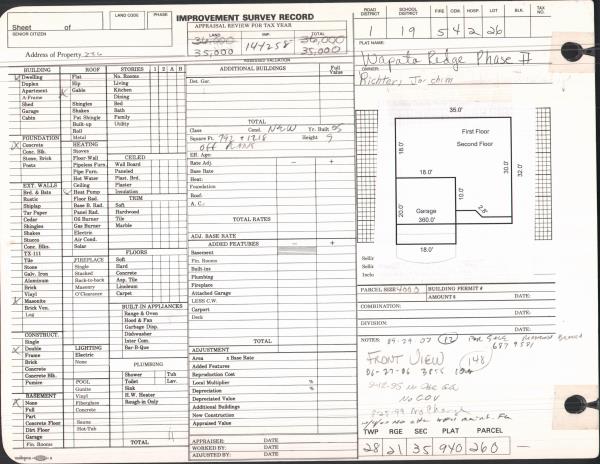 Sheet of
SENIOR CITIZEN
LAND CODE
PHASE
IMPROVEMENT SURVEY RECORD
APPRAISAL REVIEW FOR TAX YEAR
LAND IMP. TOTAL
36,000 144258 36,000
35,000 35,000
Address of Property
ASSESSED VALUATION
ROAD DISTRICT
SCHOOL DISTRICT
FIRE COM. HOSP. LOT BLK. TAX NO.
1 19 5 4 2 26
PLAT NAME:
Wapato Ridge Phase II
OWNER:
Richter, Joachim
BUILDING
Dwelling
Duplex
Apartment
A-Frame
Shed
Garage
Cabin
FOUNDATION
Concrete
Conc. Blk.
Stone, Brick
Posts
EXT. WALLS
Brd. & Bats
Rustic
Shiplap
Tar Paper
Cedar
Shingles
Shakes
Stucco
Conc. Blks.
TX-111
Tile
Stone
Galv. Iron
Aluminum
Brick
Vinyl
Masonite
Brick Ven.
Log
CONSTRUCT.
Single
Double
Frame
Brick
Concrete
Concrete Blk.
Pumice
BASEMENT
None
Full
Part
Concrete Floor
Dirt Floor
Garage
Fin. Rooms
ROOF
Flat
Hip
Gable
Shingles
Shakes
Pat Shingle
Built-up
Roll
Metal
HEATING
Stoves
Floor-Wall
Pipeless Furn.
Pipe Furn.
Hot Water
Ceiling
Heat Pump
Floor Rad.
Base B. Rad.
Panel Rad.
Oil Burner
Gas Burner
Electric
Air Cond.
Solar
FIREPLACE
Single
Stacked
Back-to-back
O'Clearance
LIGHTING
Electric
None
POOL
Gunite
Vinyl
Fiberglass
Concrete
Sauna
Hot-Tub
STORIES 1 2 A B
No. Rooms
Living
Kitchen
Dining
Bed
Bath
Family
Utility
CEILED
Wall Board
Paneled
Plast. Brd.
Plaster
Insulation
TRIM
Soft
Hardwood
Tile
Marble
FLOORS
Soft
Hard
Concrete
Asp. Tile
Linoleum
Carpet
BUILT-IN APPLIANCES
Range & Oven
Hood & Fan
Garbage Disp.
Dishwasher
Inter Com.
Bar-B-Que
PLUMBING
Shower Tub
Toilet Lav.
Sink
H.W. Heater
Rough-in Only
TOTAL
ADDITIONAL BUILDINGS Full Value
Det. Gar.
TOTAL
Class Cond. New Yr. Built 95
Square Ft. 792 + 1218 Height 9
Eff. Age:
Rate Adj. – +
Base Rate
Heat:
Foundation
Roof:
A. C.:
TOTAL RATES
ADJ. BASE RATE
ADDED FEATURES – +
Basement
Fin. Rooms
Built-ins
Plumbing
Fireplace
Attached Garage
LESS C.W.
Carport
Deck
TOTAL
ADJUSTMENT
Area x Base Rate
Added Features
Reproduction Cost
Local Multiplier %
Depreciation %
Depreciated Value
Additional Buildings
New Construction
Appraised Value
APPRAISER: DATE
WORKED BY: DATE
ADJUSTED BY: DATE
35.0'
First Floor
Second Floor
18.0'
30.0'
32.0'
18.0'
20.0'
Garage
360.0'
10.0'
2.8'
18.0'
PARCEL SIZE 4000
BUILDING PERMIT #
AMOUNT $ DATE:
COMBINATION:
DATE:
DIVISION:
DATE:
NOTES: 12
FRONT VIEW 148
No COV
8-25-99 No Change
TWP RGE SEC PLAT PARCEL
28 21 35 940 260